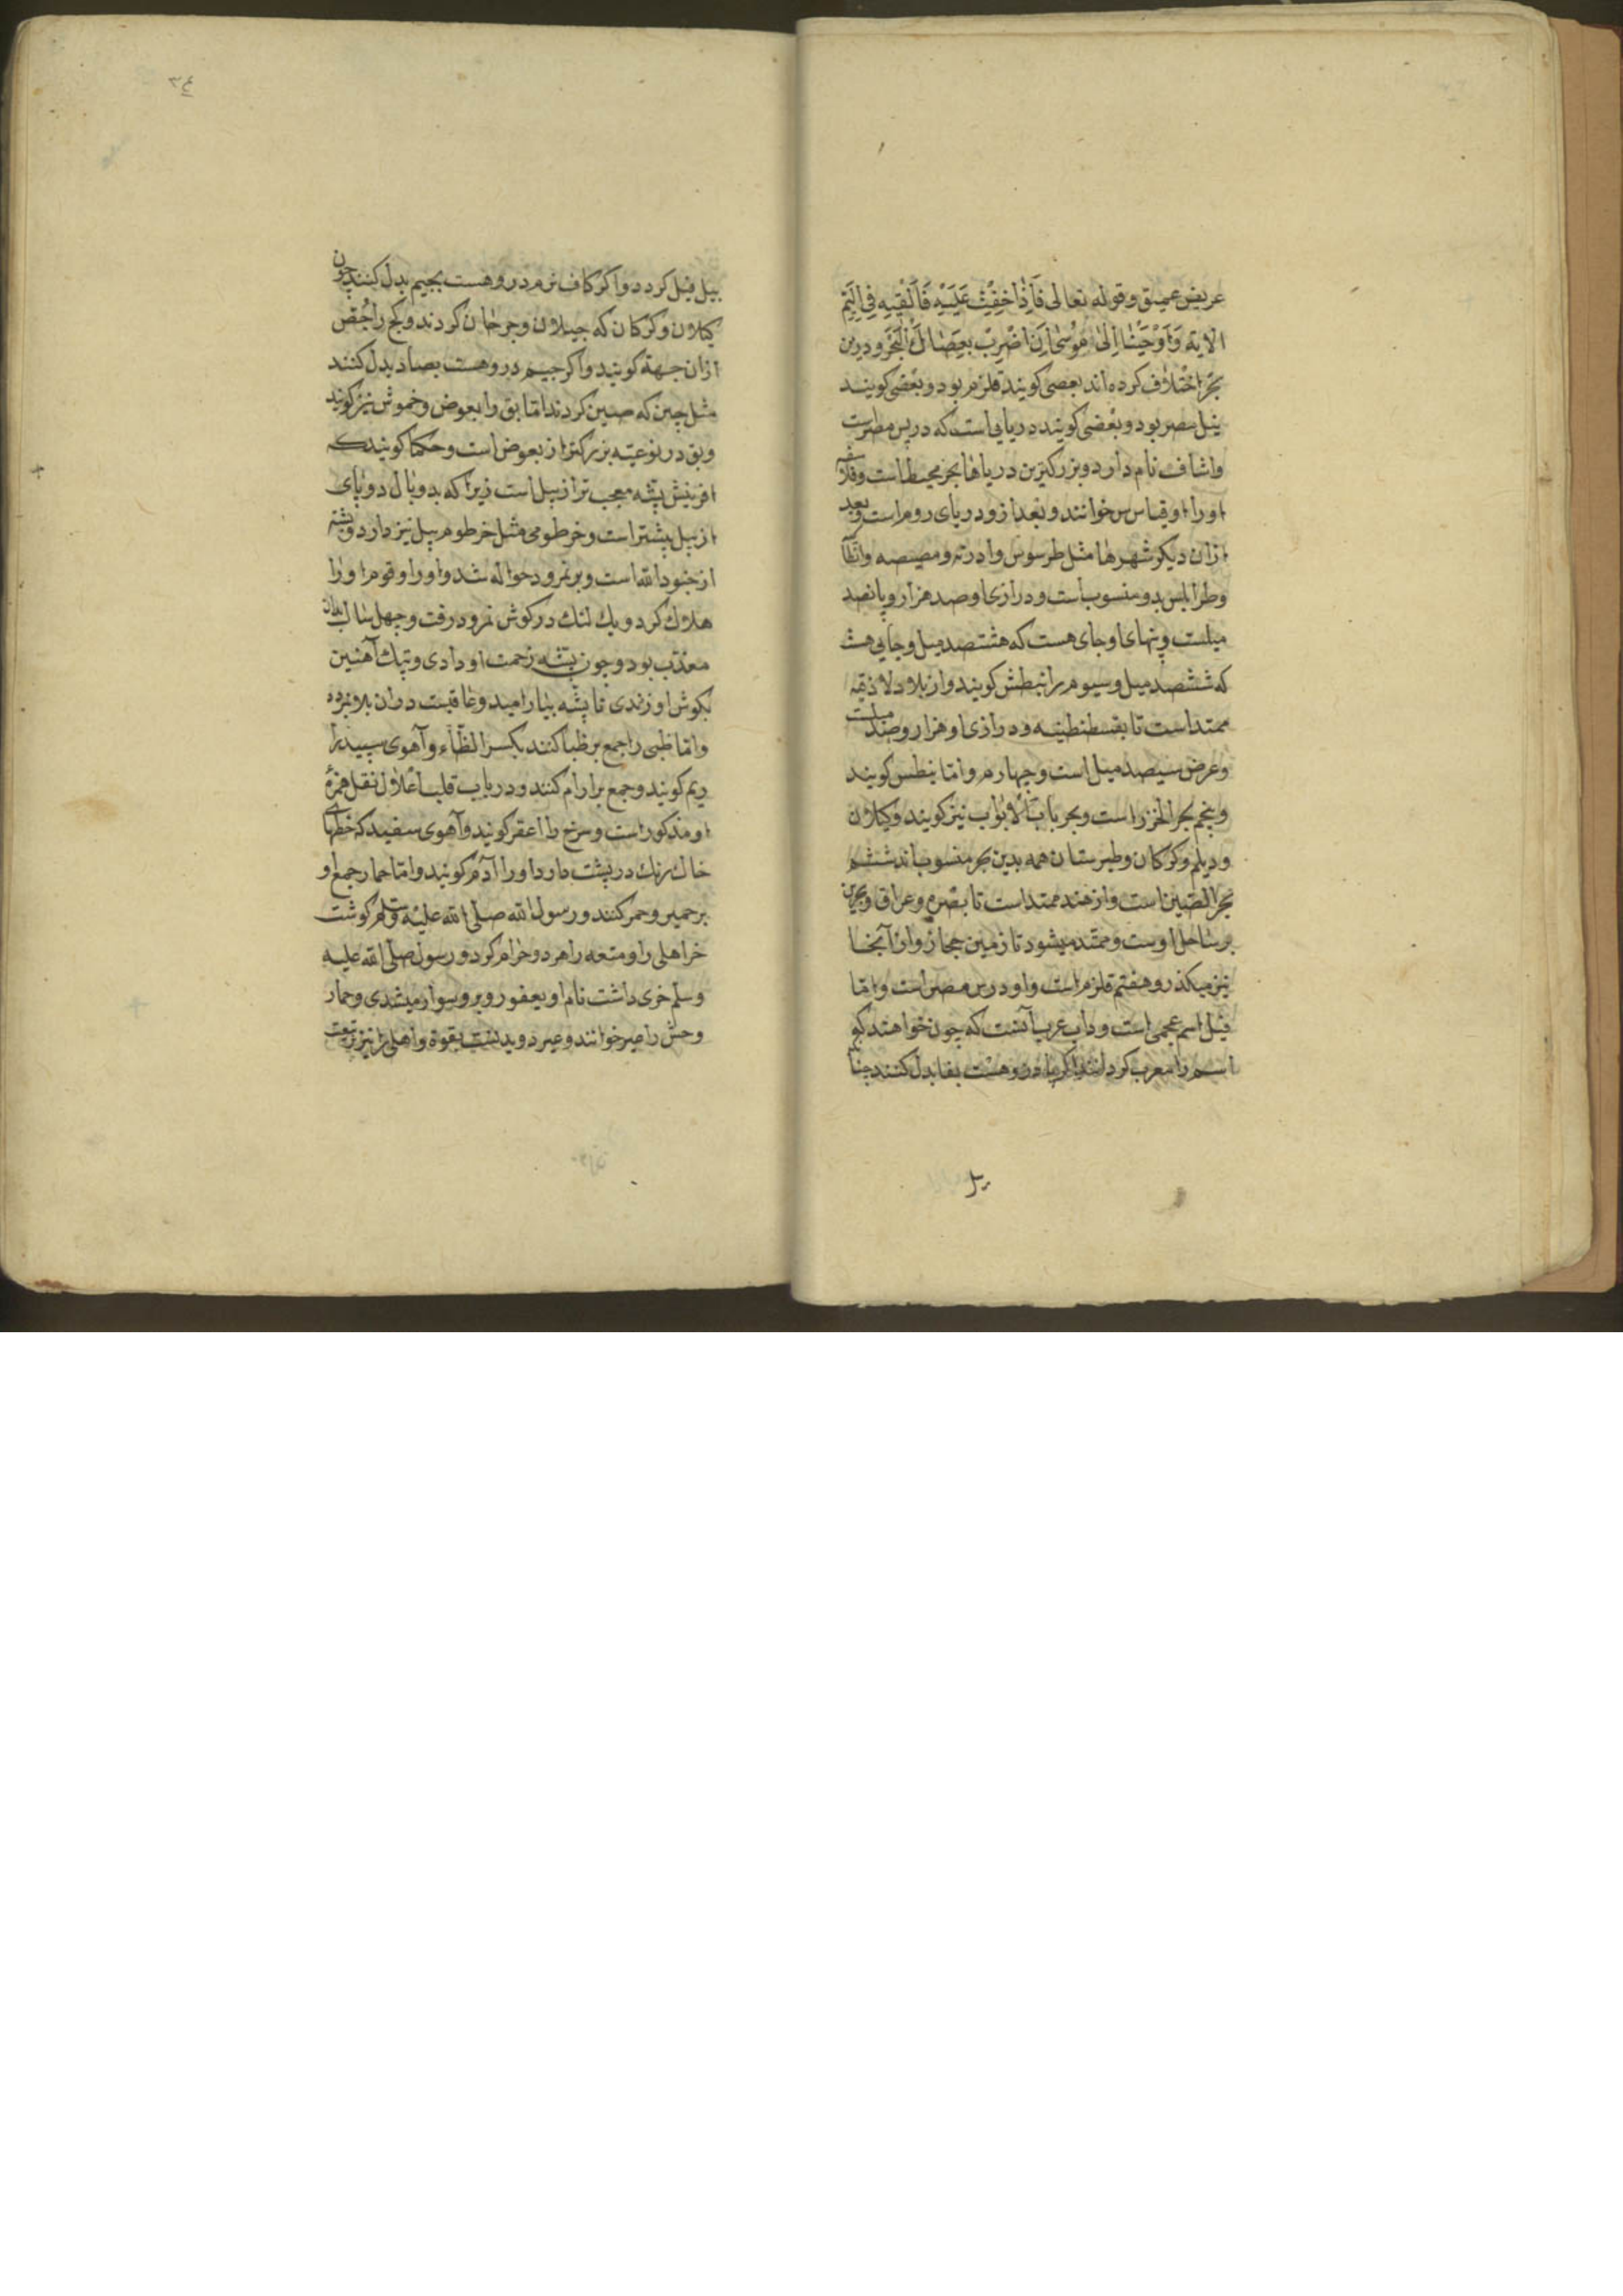 عریض عمیق و قوله تعالی فَاِذَا خِفْتِ عَلَیْهِ فَاَلْقِیهِ فِی الْیَمِّ
الایة وَاَوْحَیْنَا اِلٰی مُوسٰی اَنِ اضْرِبْ بِعَصَاكَ الْبَحْرَ و درین
بحر اختلاف کرده اند بعضی کویند قلزم بود و بعضی کویند
نیل مصر بود و بعضی کویند دریایی است که در پس مصرست
واشاف نام دارد و بزرکترین دریاها بحر محیط است و فلاسفه
اورا اوقیاس س خوانند و بعد ازو دریای روم است و بعد
ازان دیکر شهرها مثل طرسوس وادرنه ومصیصه وانطا
وطرابلس بدو منسوب است و درازی او صد هزار و پانصد
میلست و پنهای او جای هست که هشتصد میل و جایی هست
که ششصد میل و سیوم را نبطش کویند واز بلاد لاذقیه
ممتد است تا بقسطنطینیه و درازی او هزار و صد میلست
وعرض سیصد میل است و چهارم و اما نیطس کویند
و پنجم بحر الخزر است و بحر باب الابواب نیز کویند و کیلان
و دیلم و کرکان و طبرستان همه بدین بحر منسوب اند ششم
بحر الصین است واز هند ممتد است تا بصره و عراق و بحرین
بر ساحل اوست و ممتد میشود تا زمین حجاز وازانجا
نیز میکذرد و هفتم قلزم است و او در پس مصر است و اما
فیل اسم عجمی است و داب عرب آنست که چون خواهند کچ
اسم را معرب کردانند اکر با درو هست بفا بدل کنند چنا
یل
۳٤
بیل فیل کردد و اکر کاف نرم درو هست بجیم بدل کنند چون
کیلان و کرکان که جیلان و جرجان کردند و کچ را جُصّ
ازان جهة کویند و اکر جیم درو هست بصاد بدل کنند
مثل چین که صین کردند اما بق را بعوض و خموش نیز کویند
وبق در نوعیته بزرکتر از بعوض است و حکما کویند که
افرینش پشه معجب تر از پیل است زیرا که بدو بال دو پای
از پیل بیشتر است و خرطومی مثل خرطوم پیل نیز دارد و پشه
از جنود الله است و بر نمرود حواله شد و اورا و قوم اورا
هلاك کرد و یك لنك در کوش نمرود رفت و چهل سال بدان
معذب بود و چون پشه زحمت او دادی و پتك آهنین
بکوش او زندی تا پشه بیارامید و عاقبت دران بلا بمرد
واما ظبی را جمع بر ظبا کنند بکسر الظاء و آهوی سپید را
ریم کویند و جمع بر ارام کنند و در باب قلب اعلال نقل همزهٔ
او مذکور است و سرخ را اعفر کویند و آهوی سفید که خطهای
خاك رنك در پشت دارد اورا آدم کویند واما حمار جمع او
بر حمیر و حمر کنند و رسول الله صلی الله علیه وسلم کوشت
خر اهلی را و متعه را هر دو حرام کرد و رسول صلی الله علیه
وسلم خری داشت نام او یعفور و برو سوار میشدی و حمار
وحش را عیر خوانند و عیر دویدنست بقوة و اهلی را نیز